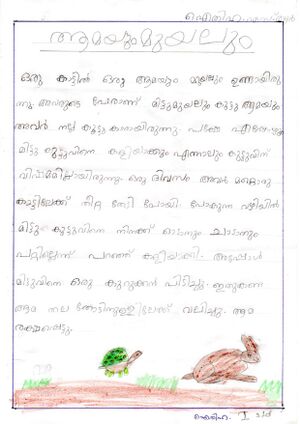 ആമയും മുയലും
ഒരു കാട്ടിൽ ഒരു ആമയും മുയലും ഉണ്ടായിരു
ന്നു. അവരുടെ പേരാണ് മിട്ടുമുയലും കുട്ടു ആമയും
അവർ നല്ല കൂട്ടുകാരായിരുന്നു. പക്ഷേ എപ്പോഴും
മിട്ടു കുട്ടുവിനെ കളിയാക്കും എന്നാലും കുട്ടുവിന്
വിഷമമില്ലായിരുന്നു. ഒരു ദിവസം അവർ മറ്റൊരു
കാട്ടിലേക്ക് തീറ്റ തേടി പോയി. പോകുന്ന വഴിയിൽ
മിട്ടു കുട്ടുവിനെ നിനക്ക് ഓടാനും ചാടാനും
പറ്റില്ലെന്ന് പറഞ്ഞ് കളിയാക്കി. അപ്പോൾ
മിട്ടുവിനെ ഒരു കുറുക്കൻ പിടിച്ചു. ഇതുകണ്ട
ആമ തല തോടിനുള്ളിലേക്ക് വലിച്ചു. ആമ
രക്ഷപ്പെട്ടു.